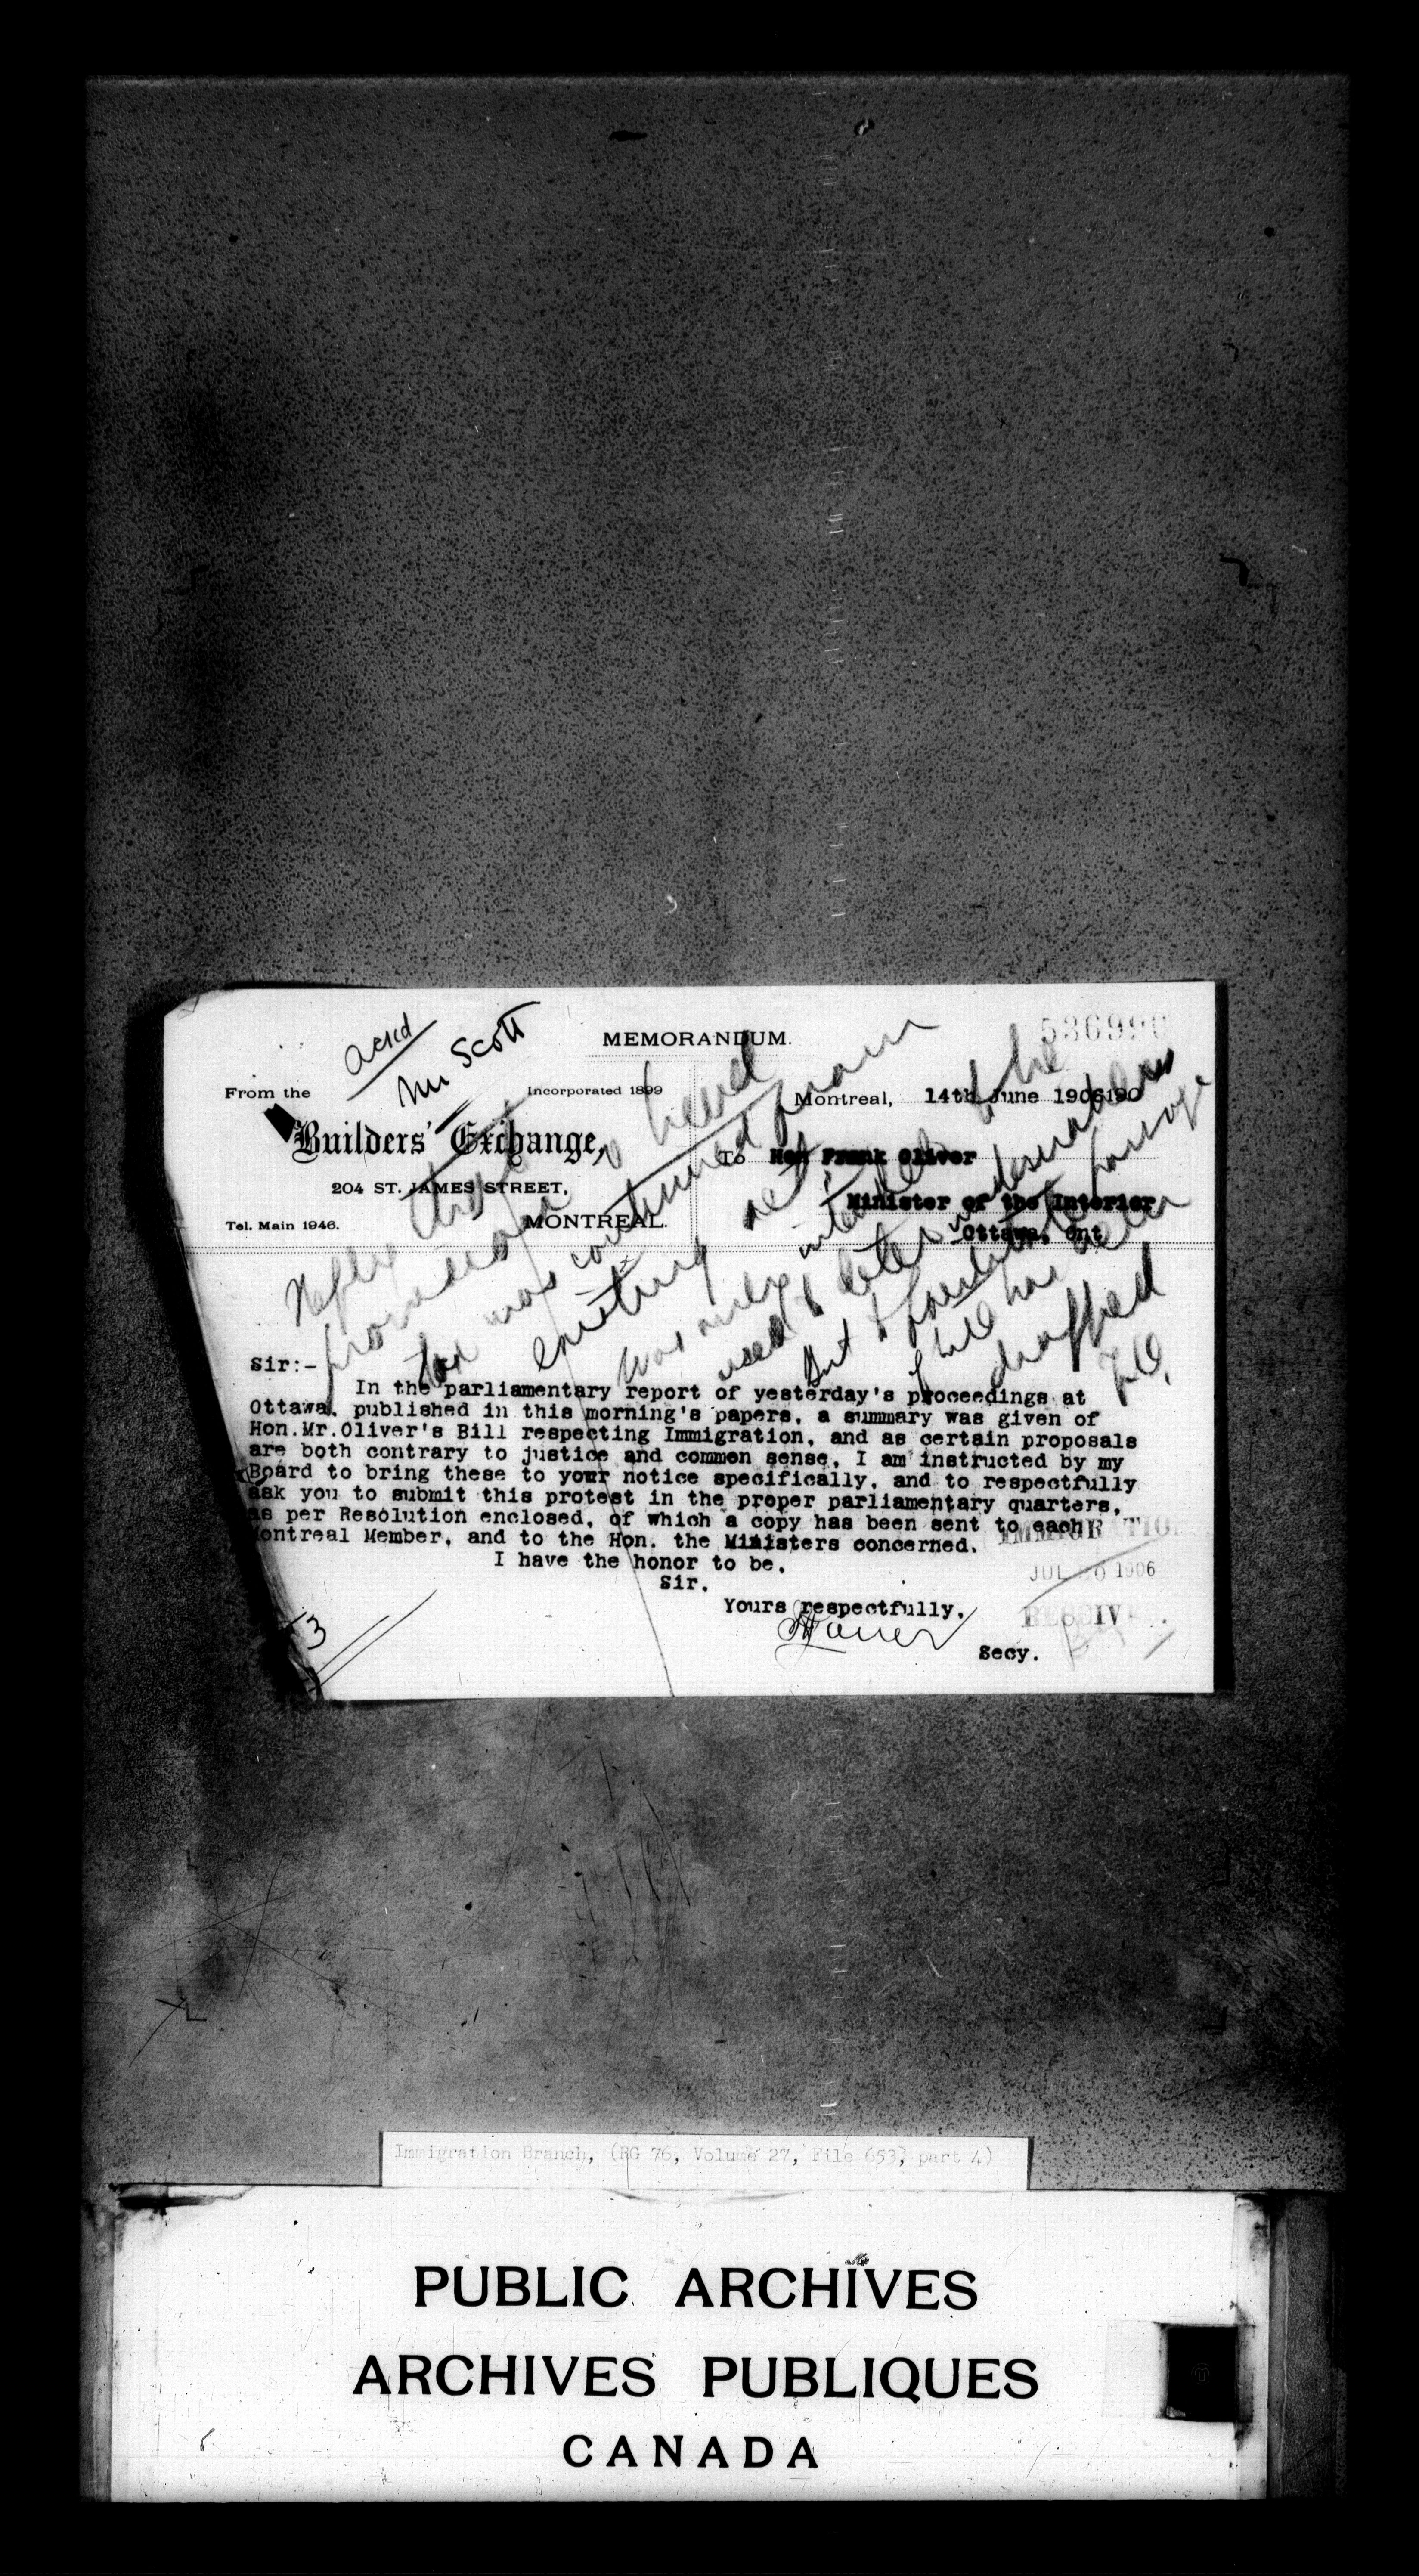 ackd
Mr Scott
MEMORANDUM.
536990
From the
Incorporated 1899
Montreal, 14th June 1906190
Builders' Exchange,
To Hon Frank Oliver
204 ST. JAMES STREET,
Minister of the Interior
Tel. Main 1946.
MONTREAL.
Ottawa, Ont
Reply
provision head
tax was continued from
existing act
was only intended to be
used to deter undesirables
but
of bill has been
dropped
F.O.
Sir:-
In the parliamentary report of yesterday's proceedings at
Ottawa, published in this morning's papers, a summary was given of
Hon.Mr.Oliver's Bill respecting Immigration, and as certain proposals
are both contrary to justice and common sense, I am instructed by my
Board to bring these to your notice specifically, and to respectfully
ask you to submit this protest in the proper parliamentary quarters,
as per Resolution enclosed, of which a copy has been sent to each
Montreal Member, and to the Hon. the Ministers concerned.
IMMIGRATION
I have the honor to be,
Sir,
JUL 30 1906
Yours respectfully,
RECEIVED.
Secy.
3
Immigration Branch, (RG 76, Volume 27, File 653, part 4)
PUBLIC ARCHIVES
ARCHIVES PUBLIQUES
CANADA